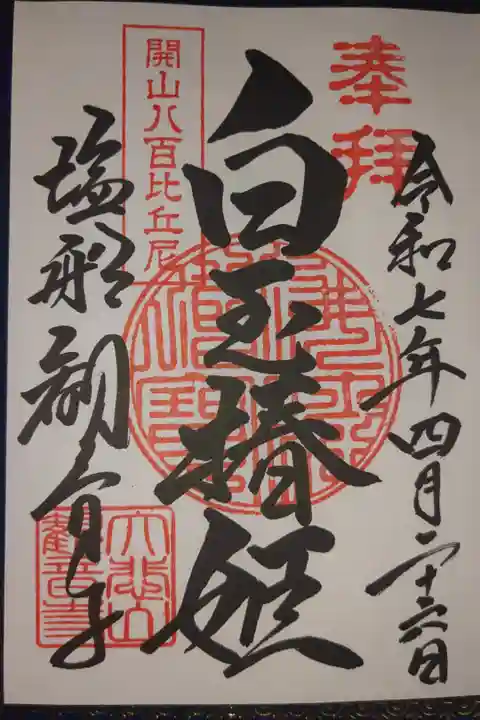 奉拝
令和七年四月二十六日
白玉椿姫
開山八百比丘尼
塩船観音寺
大悲山
観音寺